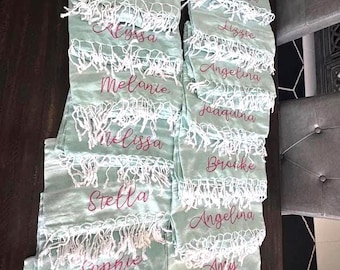 Alyssa
Melanie
Melissa
Stella
Sophie
Lizzie
Angelina
Joaquina
Brooke
Angelina
Amy